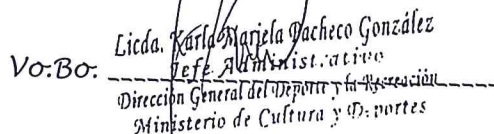 Licda. Karla Mariela Pacheco González
Vo.Bo. Jefe Administrativo
Dirección General del Deporte y la Recreación
Ministerio de Cultura y Deportes